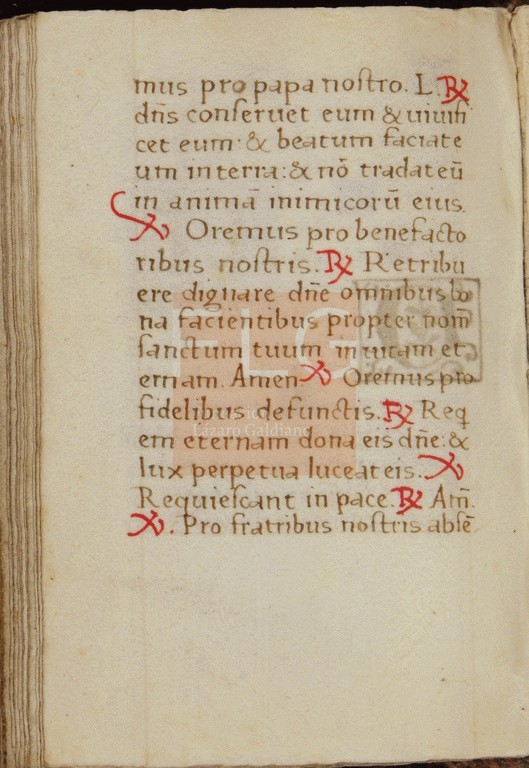 mus pro papa nostro. L. ℟
dn̄s conseruet eum & uiuifi
cet eum: & beatum faciat e
um in terra: & nō tradat eū
in animā inimicorū eius.
℣ Oremus pro benefacto
ribus nostris. ℟ Retribu
ere dignare dn̄e omnibus bo
na facientibus propter nom̄
sanctum tuum in uitam et
ernam. Amen ℣ Oremus pro
fidelibus defunctis. ℟ Requ
em eternam dona eis dn̄e: &
lux perpetua luceat eis. ℣
Requiescant in pace. ℟ Am̄.
℣. Pro fratribus nostris absē
FLG
Lázaro Galdiano